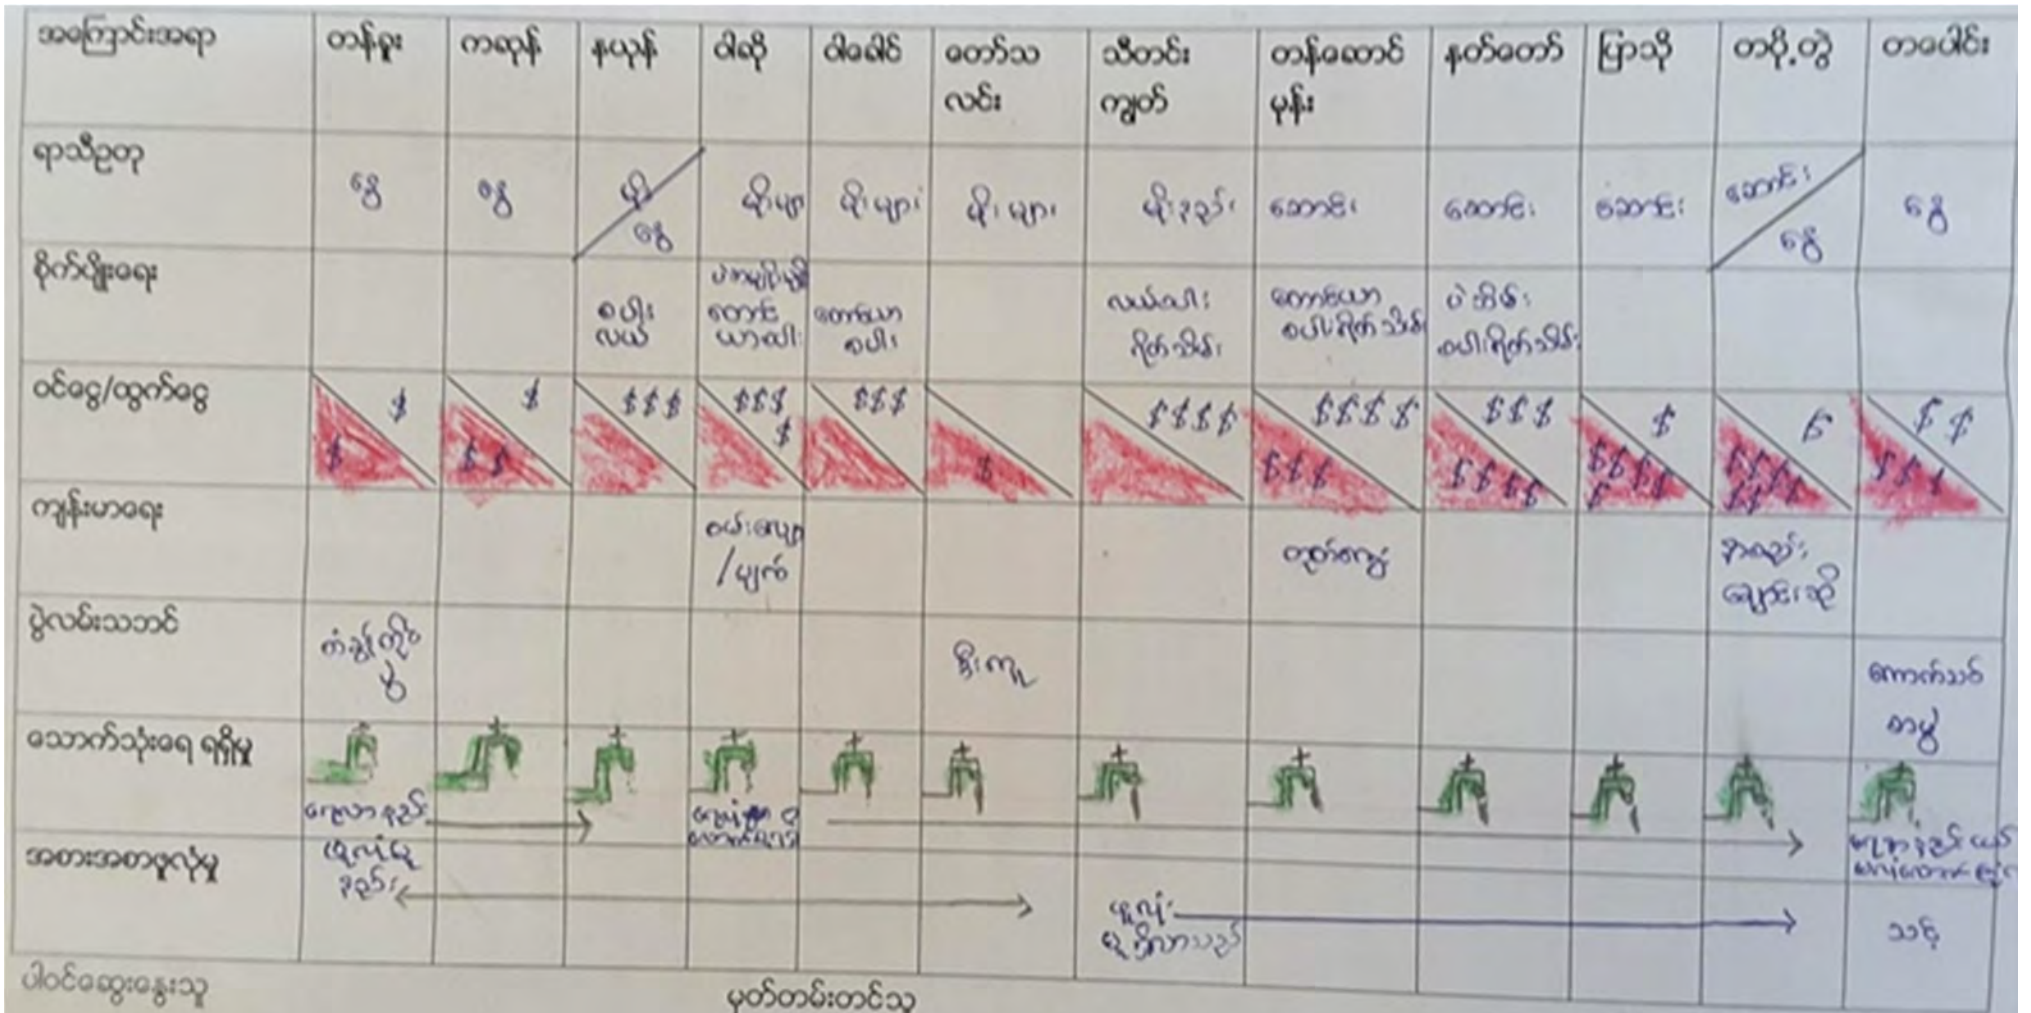 အကြောင်းအရာ တန်ခူး ကဆုန် နယုန် ဝါဆို ဝါခေါင် တော်သလင်း သီတင်းကျွတ် တန်ဆောင်မုန်း နတ်တော် ပြာသို တပို့တွဲ တပေါင်း
ရာသီဥတု နွေ နွေ မိုး နွေ မိုးများ မိုးများ မိုးများ မိုးနည်း ဆောင်း ဆောင်း ဆောင်း ဆောင်း နွေ နွေ
စိုက်ပျိုးရေး
စပါး တောင် တောင်ယာ လယ်စပါး တောင်ယာ ပဲသိမ်း
လယ် ယာစပါး စပါး ရိတ်သိမ်း စပါးရိတ်သိမ်း စပါးရိတ်သိမ်း
ဝင်ငွေ/ထွက်ငွေ $ $ $$$ $$$ $$$ $$$$ $$$$ $$$ $ $ $$
$ $$ $ $ $$$ $$$$ $$$$ $$$$ $$$
$ $$
ကျန်းမာရေး ဝမ်းလျော တုတ်ကွေး နှာစည်း
/ပျက် ချောင်းဆို
ပွဲလမ်းသဘင် တံခွန်တိုင် ကောက်သစ်
ပွဲ စားပွဲ
သောက်သုံးရေ ရရှိမှု
ရေလာနည်း
အစားအစာဖူလုံမှု ဖူလုံမှု
နည်း ဖူလုံ
မှု ရှိလာသည် သင့်
ပါဝင်ဆွေးနွေးသူ မှတ်တမ်းတင်သူ